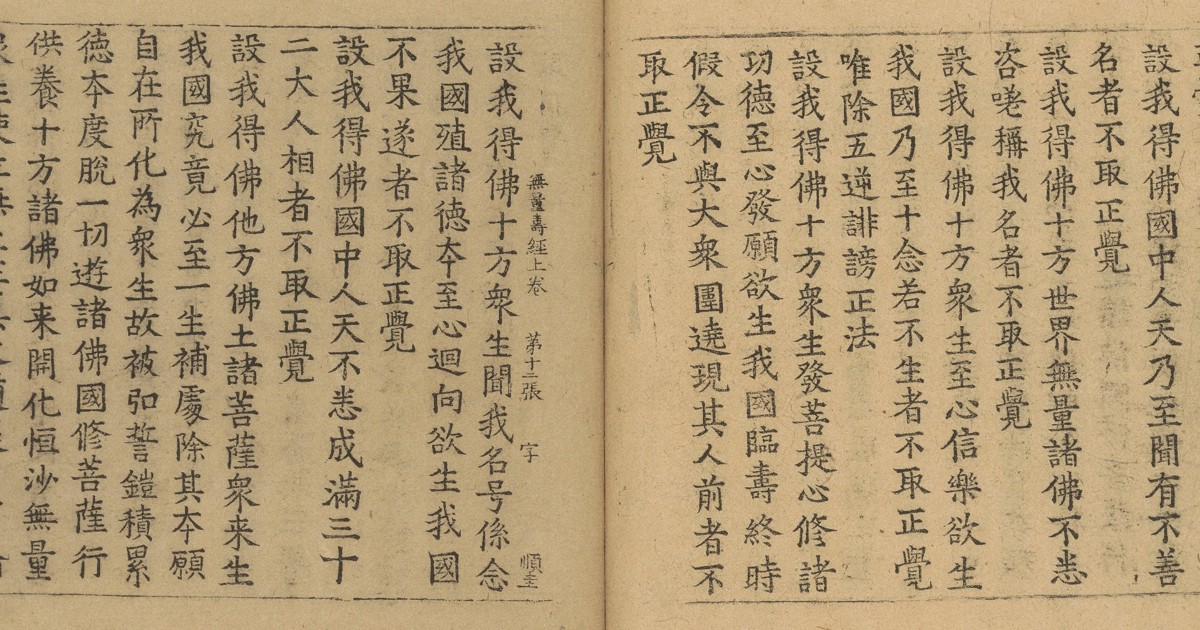 設我得佛國中人天乃至聞有不善
名者不取正覺
設我得佛十方世界無量諸佛不悉
咨嗟稱我名者不取正覺
設我得佛十方衆生至心信樂欲生
我國乃至十念若不生者不取正覺
唯除五逆誹謗正法
設我得佛十方衆生發菩提心修諸
功德至心發願欲生我國臨壽終時
假令不與大衆圍遶現其人前者不
取正覺
無量壽經上卷 第十二張 字 順圭
設我得佛十方衆生聞我名号係念
我國殖諸德夲至心迴向欲生我國
不果遂者不取正覺
設我得佛國中人天不悉成滿三十
二大人相者不取正覺
設我得佛他方佛土諸菩薩衆来生
我國究竟必至一生補處除其夲願
自在所化為衆生故被弘誓鎧積累
德夲度脫一切遊諸佛國修菩薩行
供養十方諸佛如来開化恒沙無量